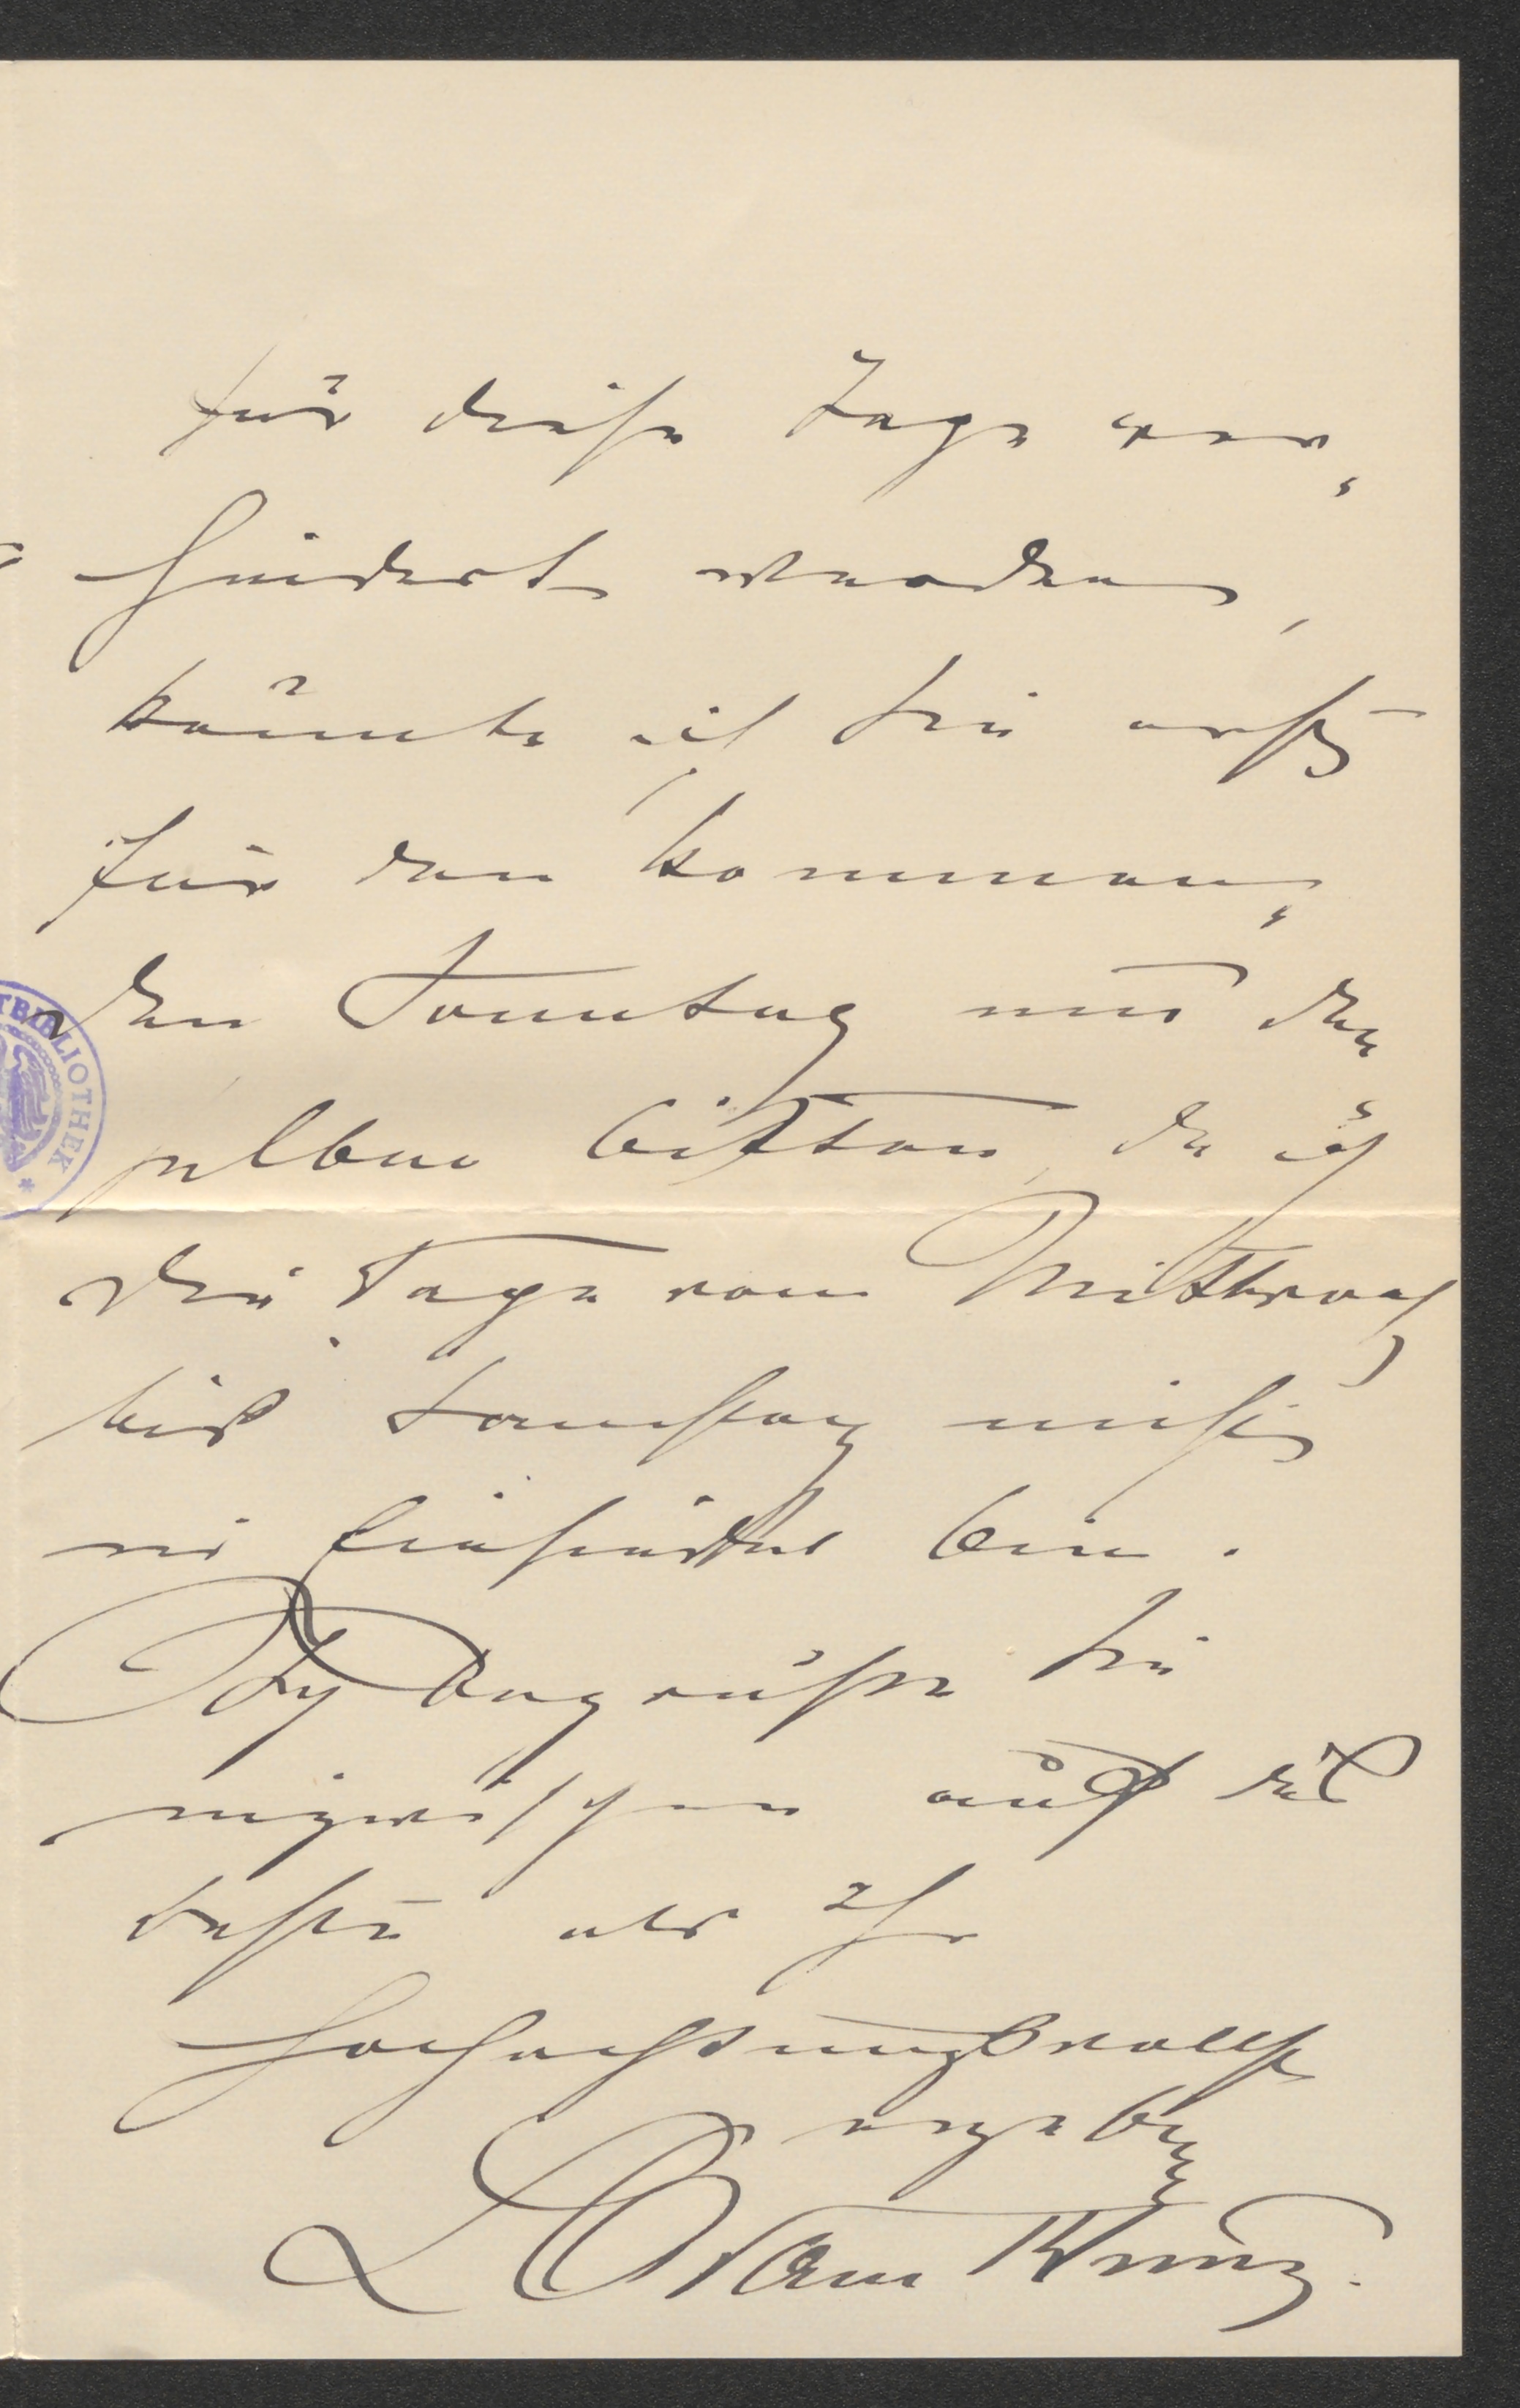 für diese Tage ver„
hindert werden,
könnte ich Sie erst
für den kommen„
den Sonntag um den„
selben bitten, da ich
die Tage von Mittwoch
bis Samstag nicht
in
bin.
Ich begrüße Sie
inzwischen auf das
beste als Ihr
hochachtungsvollst
ergebener
TBIBLIOTHEK *